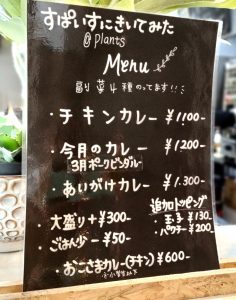 すぱいすにきいてみた
@plants
Menu
副菜4種のってます!!
・チキンカレー ¥1100-
・今月のカレー ¥1200-
3月ポークビンダルー
・あいがけカレー ¥1.300-
・大盛り+¥300-
・ごはん少-¥50-
追加トッピング
・玉子¥130
・パクチー¥200
・おこさまカレー(チキン)¥600-
※小学生以下